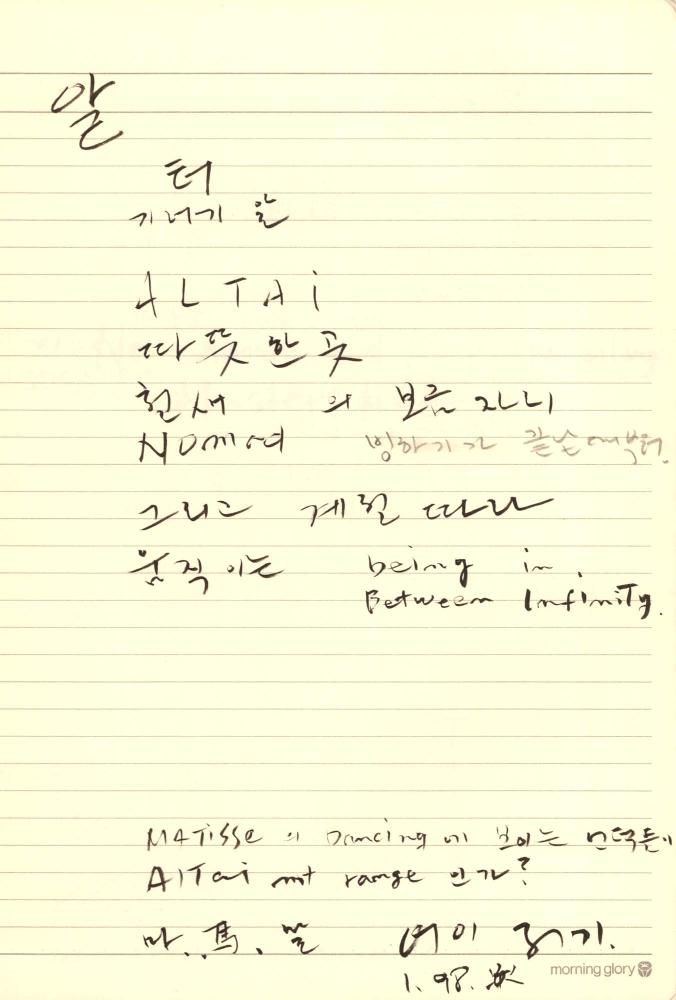 알
터
기러기 알
ALTAi
따뜻한 곳
철새 의 보금자리
빙하기가 끝난 때부터.
그리고 계절 따라
움직이는 being in.
Between InfiniTy.
MATisse 의 Dancing 에 보이는 언덕들이
AlTai mt range 인가?
마..馬.
읽기.
1. 98.
morning glory